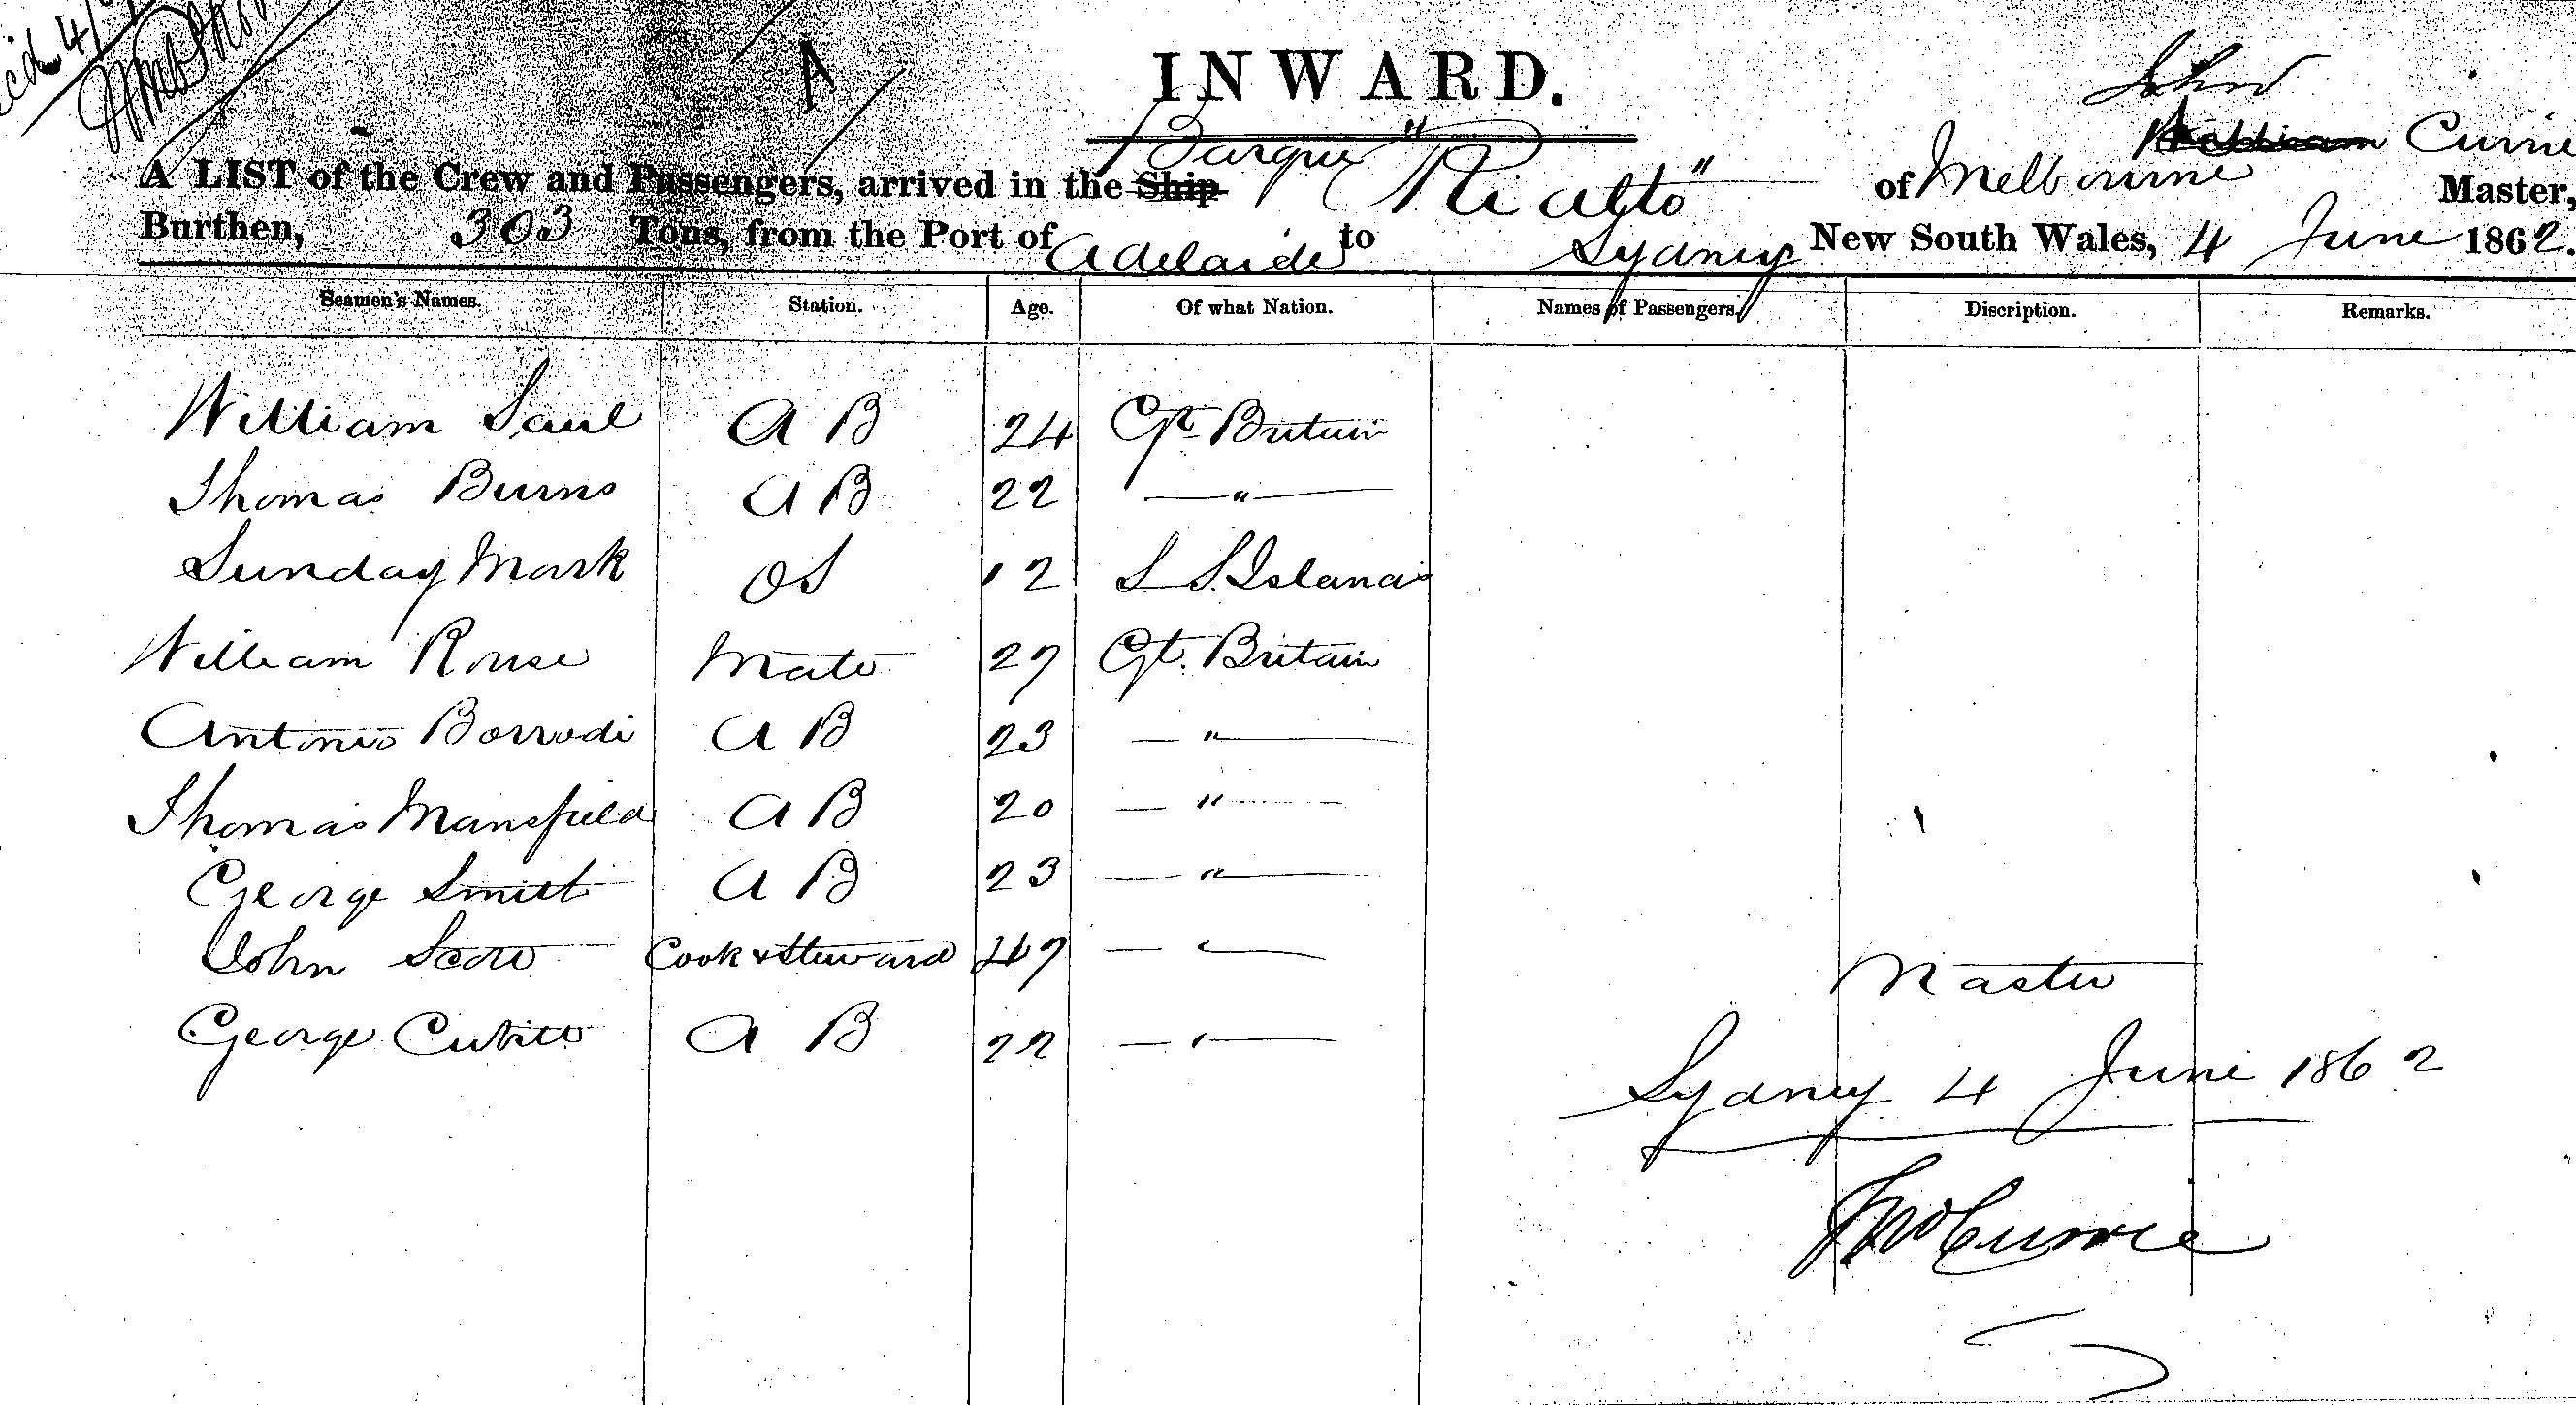 A
INWARD.
John
A LIST of the Crew and Passengers, arrived in the Ship Barque "Rialto" of Melbourne William Currie Master,
Burthen, 303 Tons, from the Port of Adelaide to Sydney New South Wales, 4 June 1862.
Seamen's Names. Station. Age. Of what Nation. Names of Passengers. Discription. Remarks.
William Saul A B 24 Gt Britain
Thomas Burns A B 22 — " —
Sunday Mark O S 12 S. S. Islands
William Rouse Mate 27 Gt. Britain
Antonio Borrodi A B 23 — " —
Thomas Mansfield A B 20 — " —
George Smith A B 23 — " —
John Scott Cook & Steward 47 — " —
George Cubitt A B 22 — " —
Master
Sydney 4 June 1862
Jno Currie